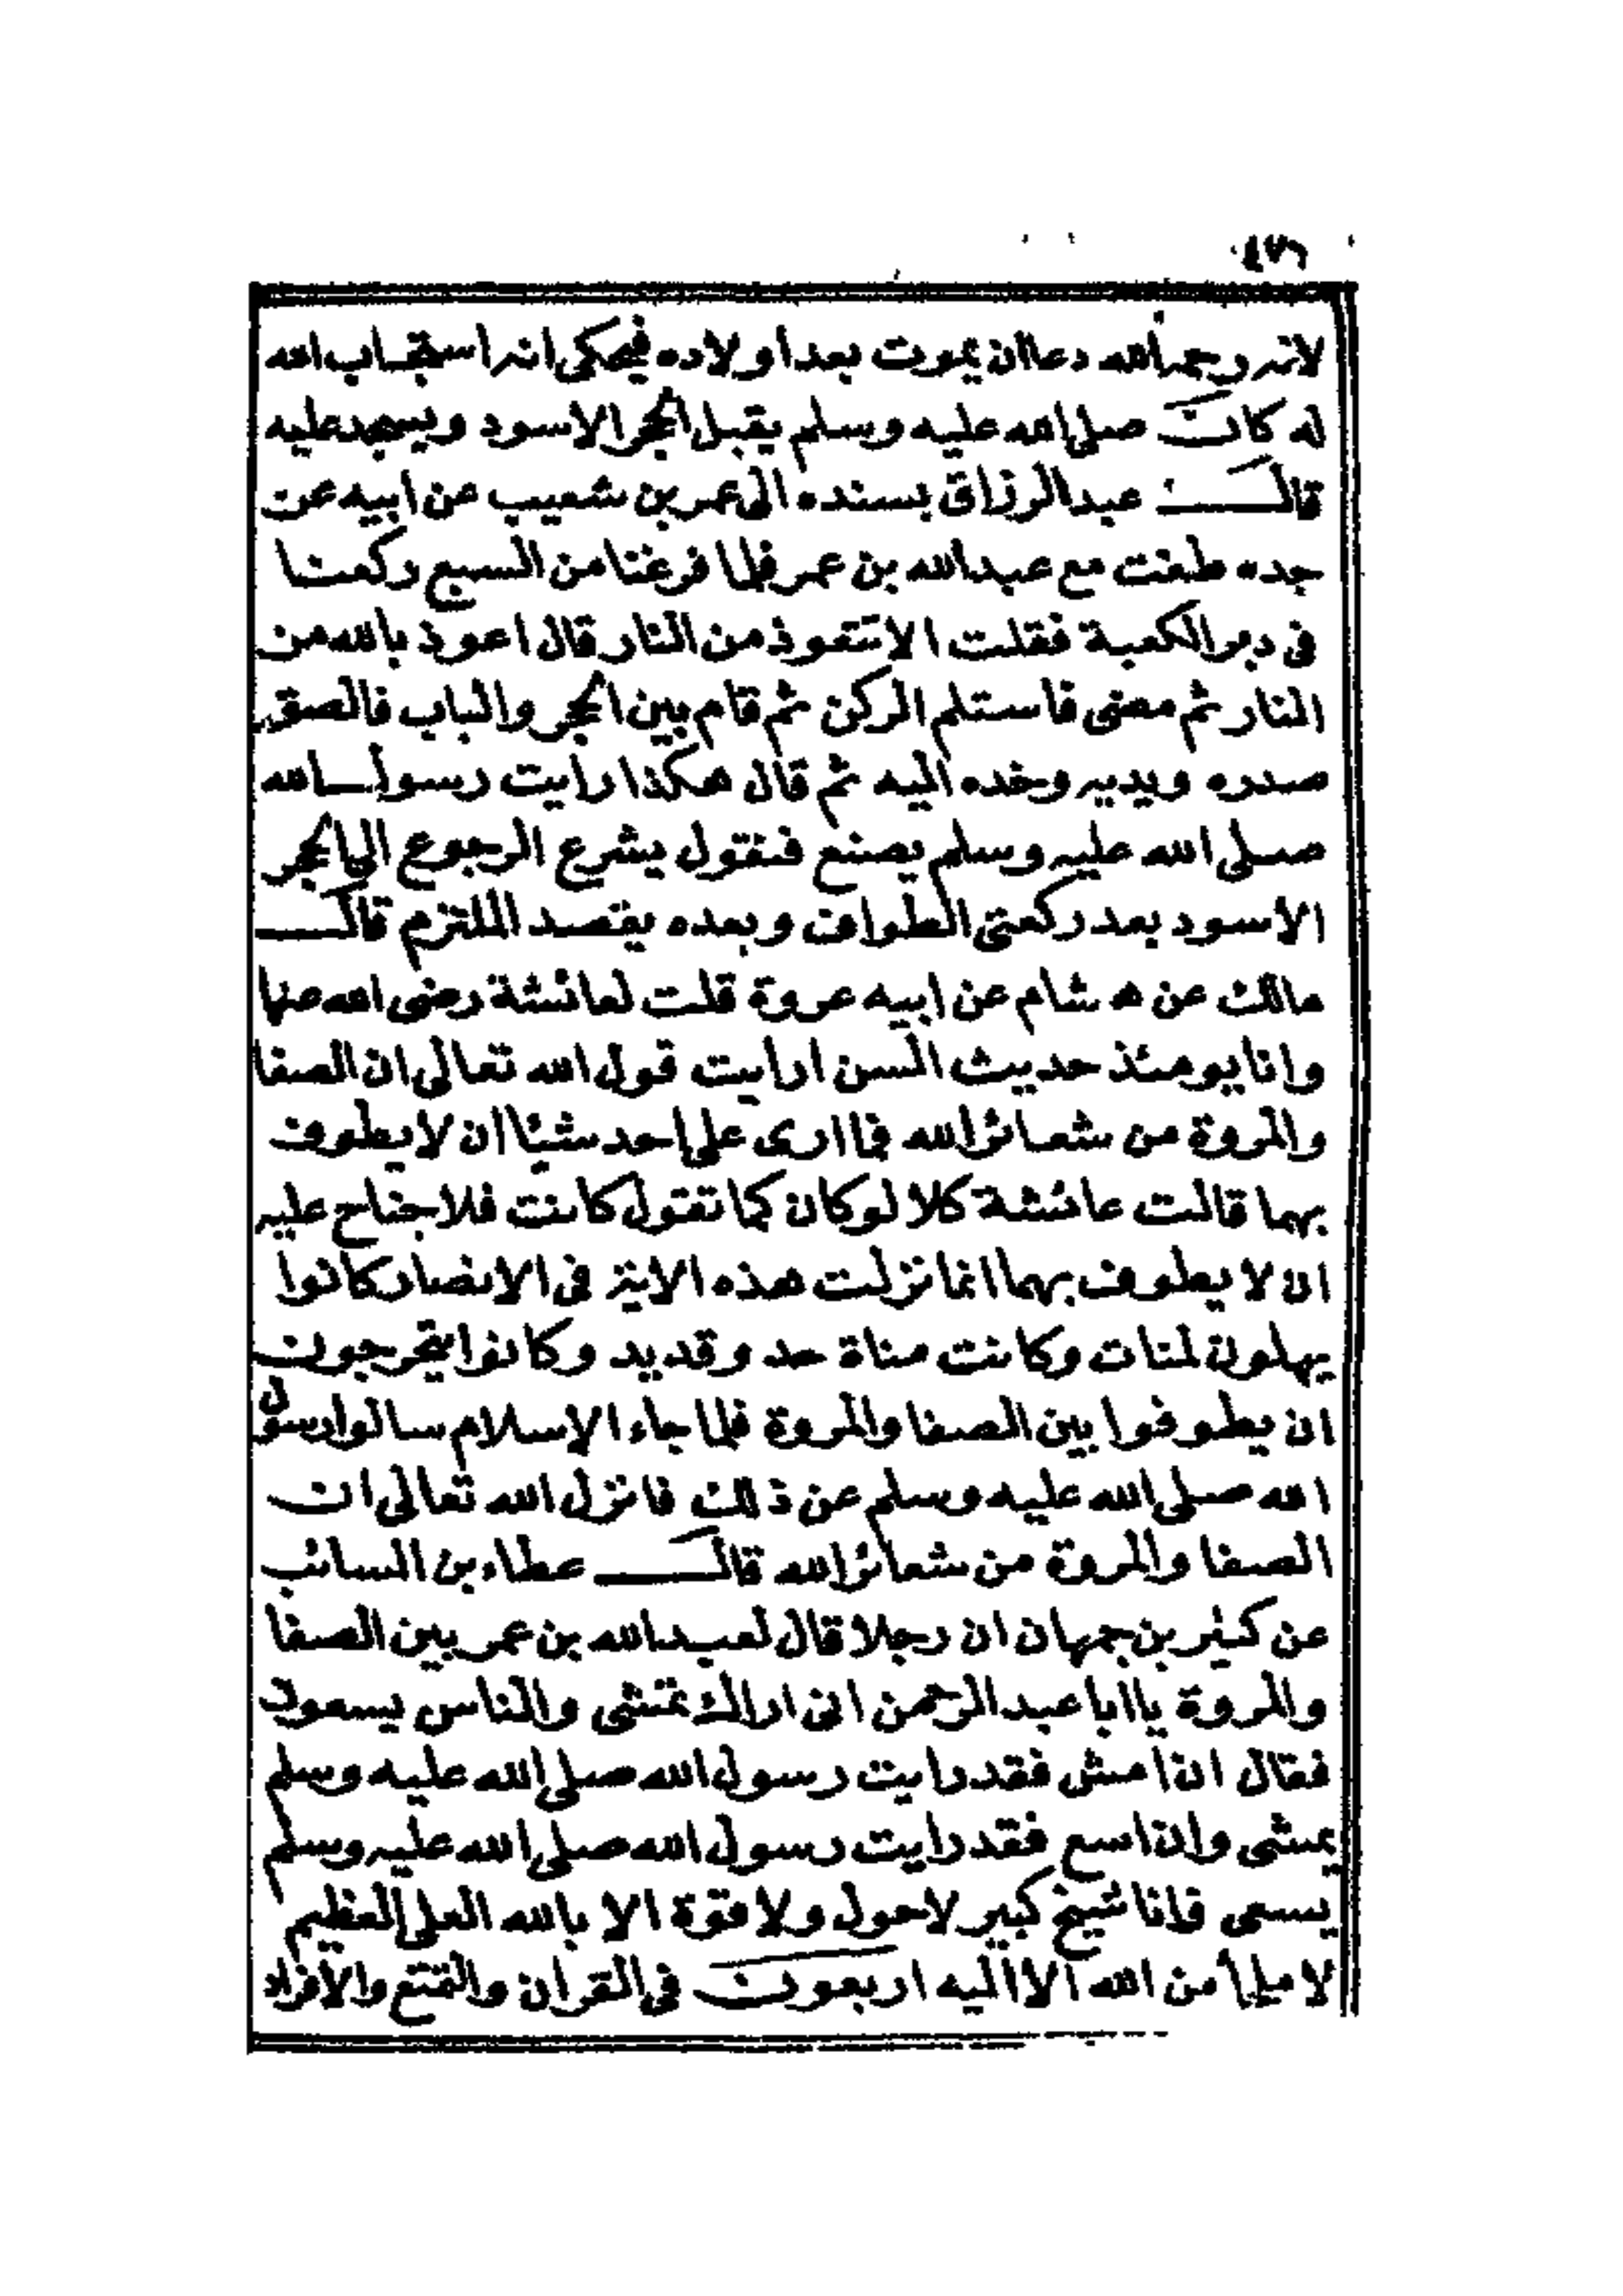 لانه رحمه الله دعا ان يموت بعد اولاده فيحكى انه استجاب الله
له كان صلى الله عليه وسلم يقبل الحجر الاسود ويسجد عليه
قال عبد الرزاق بسنده الى عمر بن شعيب عن ابيه عن
جده طفت مع عبد الله بن عمر فلما فرغنا من السبع ركعنا
فى دبر الكعبة فقلت الا تتعوذ من النار قال اعوذ بالله من
النار ثم مضى فاستلم الركن ثم قام بين الحجر والباب فالصق
صدره ويديه وخده اليه ثم قال هكذا رايت رسول الله
صلى الله عليه وسلم يصنع فنقول يشرع الرجوع الى الحجر
الاسود بعد ركعتى الطواف وبعده يقصد الملتزم قال
مالك عن هشام عن ابيه عروة قلت لعائشة رضى الله عنها
وانا يومئذ حديث السن ارايت قول الله تعالى ان الصفا
والمروة من شعائر الله فما ارى على احد شيئا ان لا يطوف
بهما قالت عائشة كلا لو كان كما تقول كانت فلا جناح عليه
ان لا يطوف بهما انما نزلت هذه الاية فى الانصار كانوا
يهلون لمنات وكانت مناة حد وقديد وكانوا يتحرجون
ان يطوفوا بين الصفا والمروة فلما جاء الإسلام سالوا رسول
الله صلى الله عليه وسلم عن ذلك فانزل الله تعالى ان
الصفا والمروة من شعائر الله قال عطاء بن السائب
عن كثير بن جمهان ان رجلا قال لعبد الله بن عمر بين الصفا
والمروة يا ابا عبد الرحمن انى اراك تمشى والناس يسعون
فقال ان امش فقد رايت رسول الله صلى الله عليه وسلم
يمشى وان اسع فقد رايت رسول الله صلى الله عليه وسلم
يسعى وانا شيخ كبير لا حول ولا قوة الا بالله العلى العظيم
لا ملجأ من الله الا اليه اربعون فى القران والتمتع والافراد